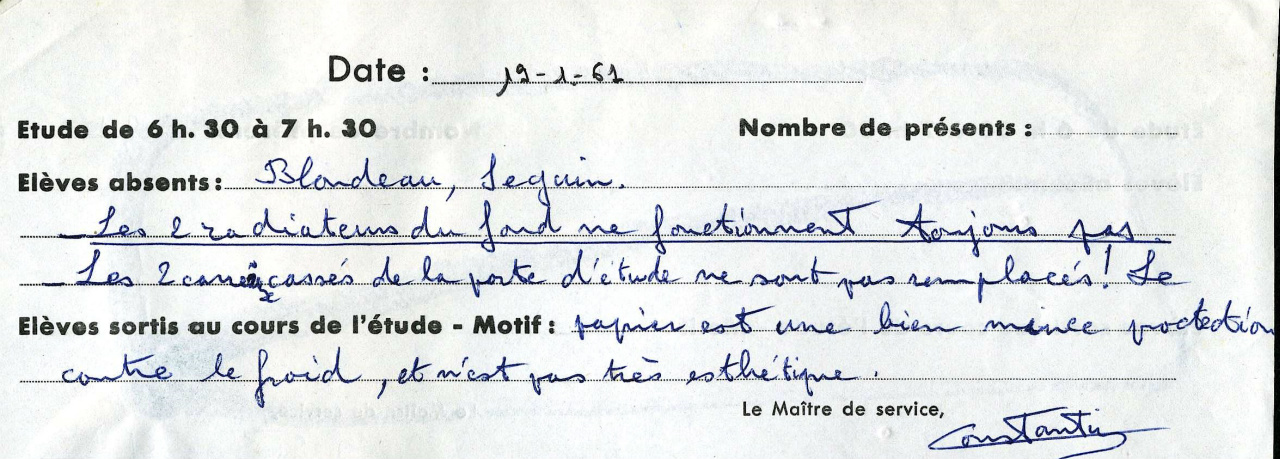 Date : 19-1-61
Etude de 6 h. 30 à 7 h. 30 Nombre de présents :
Elèves absents : Blondeau, Seguin.
- Les 2 radiateurs du fond ne fonctionnent toujours pas.
- Les 2 carreaux cassés de la porte d'étude ne sont pas remplacés! Le
Elèves sortis au cours de l'étude - Motif : papier est une bien mince protection
contre le froid, et n'est pas très esthétique.
Le Maître de service,
Constantin